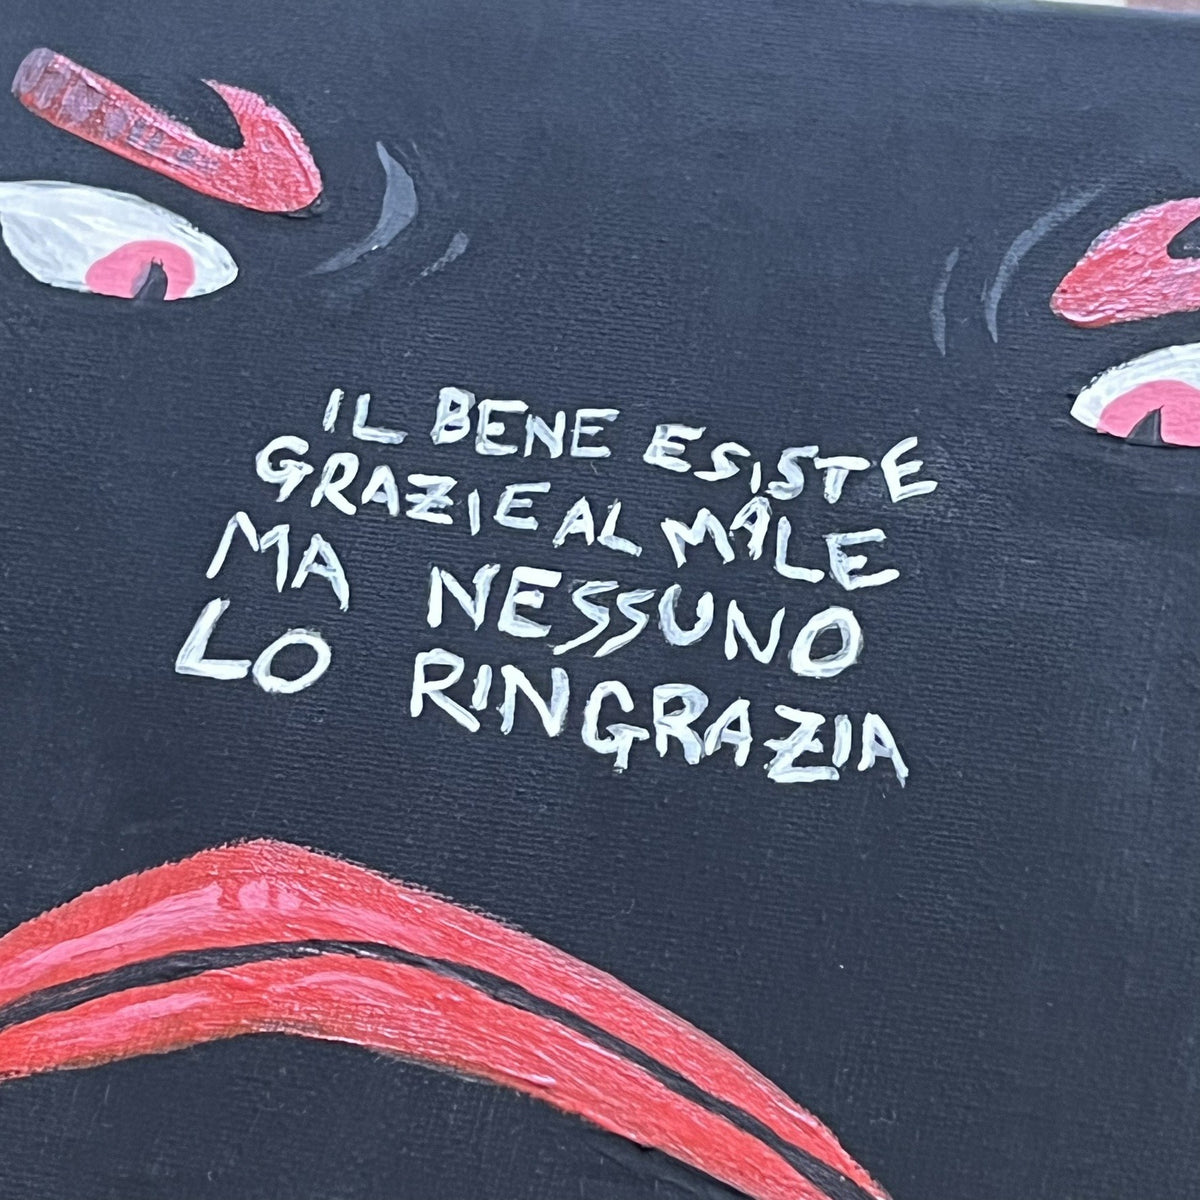 IL BENE ESISTE
GRAZIE AL MALE
MA NESSUNO
LO RINGRAZIA